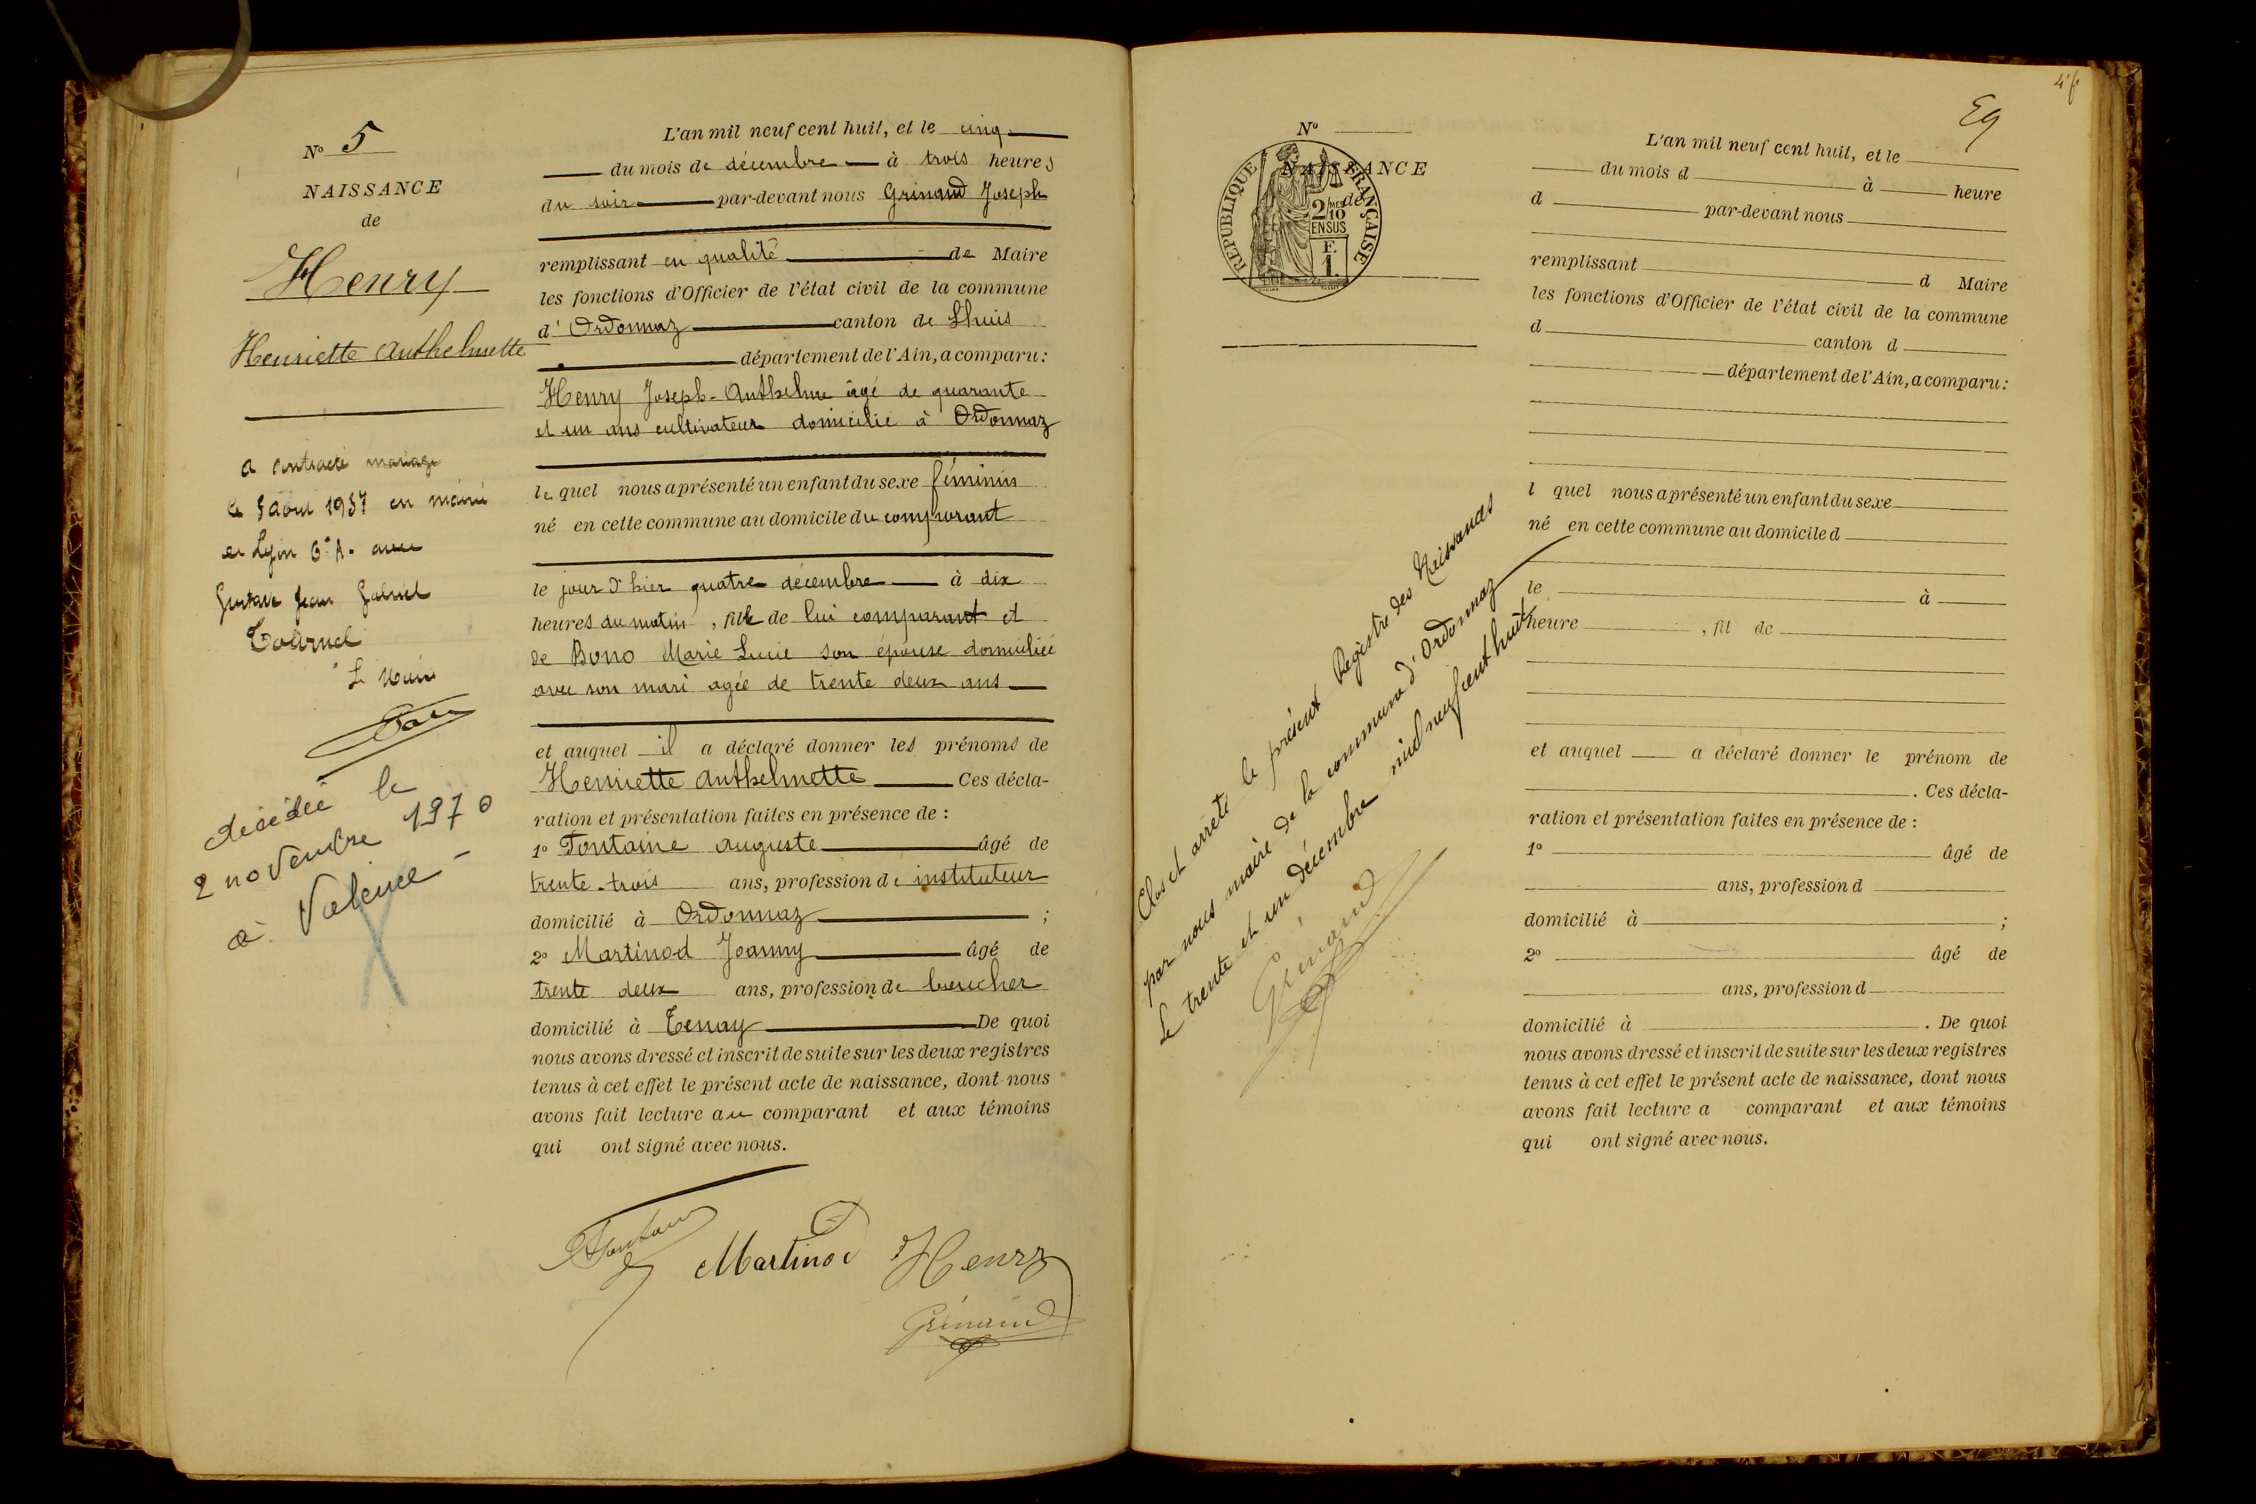 N° 5
NAISSANCE
de
Henry
Henriette Anthelmette
a contracté mariage
le 5 août 1937 en mairie
de Lyon 6e A. avec
Gustave Jean Gabriel
Tournel
Le Maire
décédée le
2 novembre 1970
à Valence
L'an mil neuf cent huit, et le cinq
du mois de décembre à trois heures
du soir par-devant nous Grinand Joseph
remplissant en qualité de Maire
les fonctions d'Officier de l'état civil de la commune
d'Ordonnaz canton de Lhuis
département de l'Ain, a comparu :
Henry Joseph-Anthelme âgé de quarante
et un ans cultivateur domicilié à Ordonnaz
lequel nous a présenté un enfant du sexe féminin
né en cette commune au domicile du comparant
le jour d'hier quatre décembre à dix
heures du matin, fille de lui comparant et
de Bono Marie Lucie son épouse domiciliée
avec son mari agée de trente deux ans
et auquel il a déclaré donner les prénoms de
Henriette Anthelmette Ces décla-
ration et présentation faites en présence de :
1° Fontaine Auguste âgé de
trente-trois ans, profession de instituteur
domicilié à Ordonnaz ;
2° Martinod Joanny âgé de
trente deux ans, profession de boucher
domicilié à Tenay De quoi
nous avons dressé et inscrit de suite sur les deux registres
tenus à cet effet le présent acte de naissance, dont nous
avons fait lecture au comparant et aux témoins
qui ont signé avec nous.
Fontaine Martinod Henry
Grinand
N°
NAISSANCE
de
RÉPUBLIQUE FRANÇAISE
2/10 MES
EN SUS
F.
1.
Clos et arrêté le présent Registre des Naissances
par nous maire de la commune d'Ordonnaz
Le trente et un décembre mil neuf cent huit
Grinand
L'an mil neuf cent huit, et le
du mois d à heure
d par-devant nous
remplissant d Maire
les fonctions d'Officier de l'état civil de la commune
d canton d
département de l'Ain, a comparu :
l quel nous a présenté un enfant du sexe
né en cette commune au domicile d
le à
heure , fil de
et auquel a déclaré donner le prénom de
. Ces décla-
ration et présentation faites en présence de :
1° âgé de
ans, profession d
domicilié à ;
2° âgé de
ans, profession d
domicilié à . De quoi
nous avons dressé et inscrit de suite sur les deux registres
tenus à cet effet le présent acte de naissance, dont nous
avons fait lecture a comparant et aux témoins
qui ont signé avec nous.